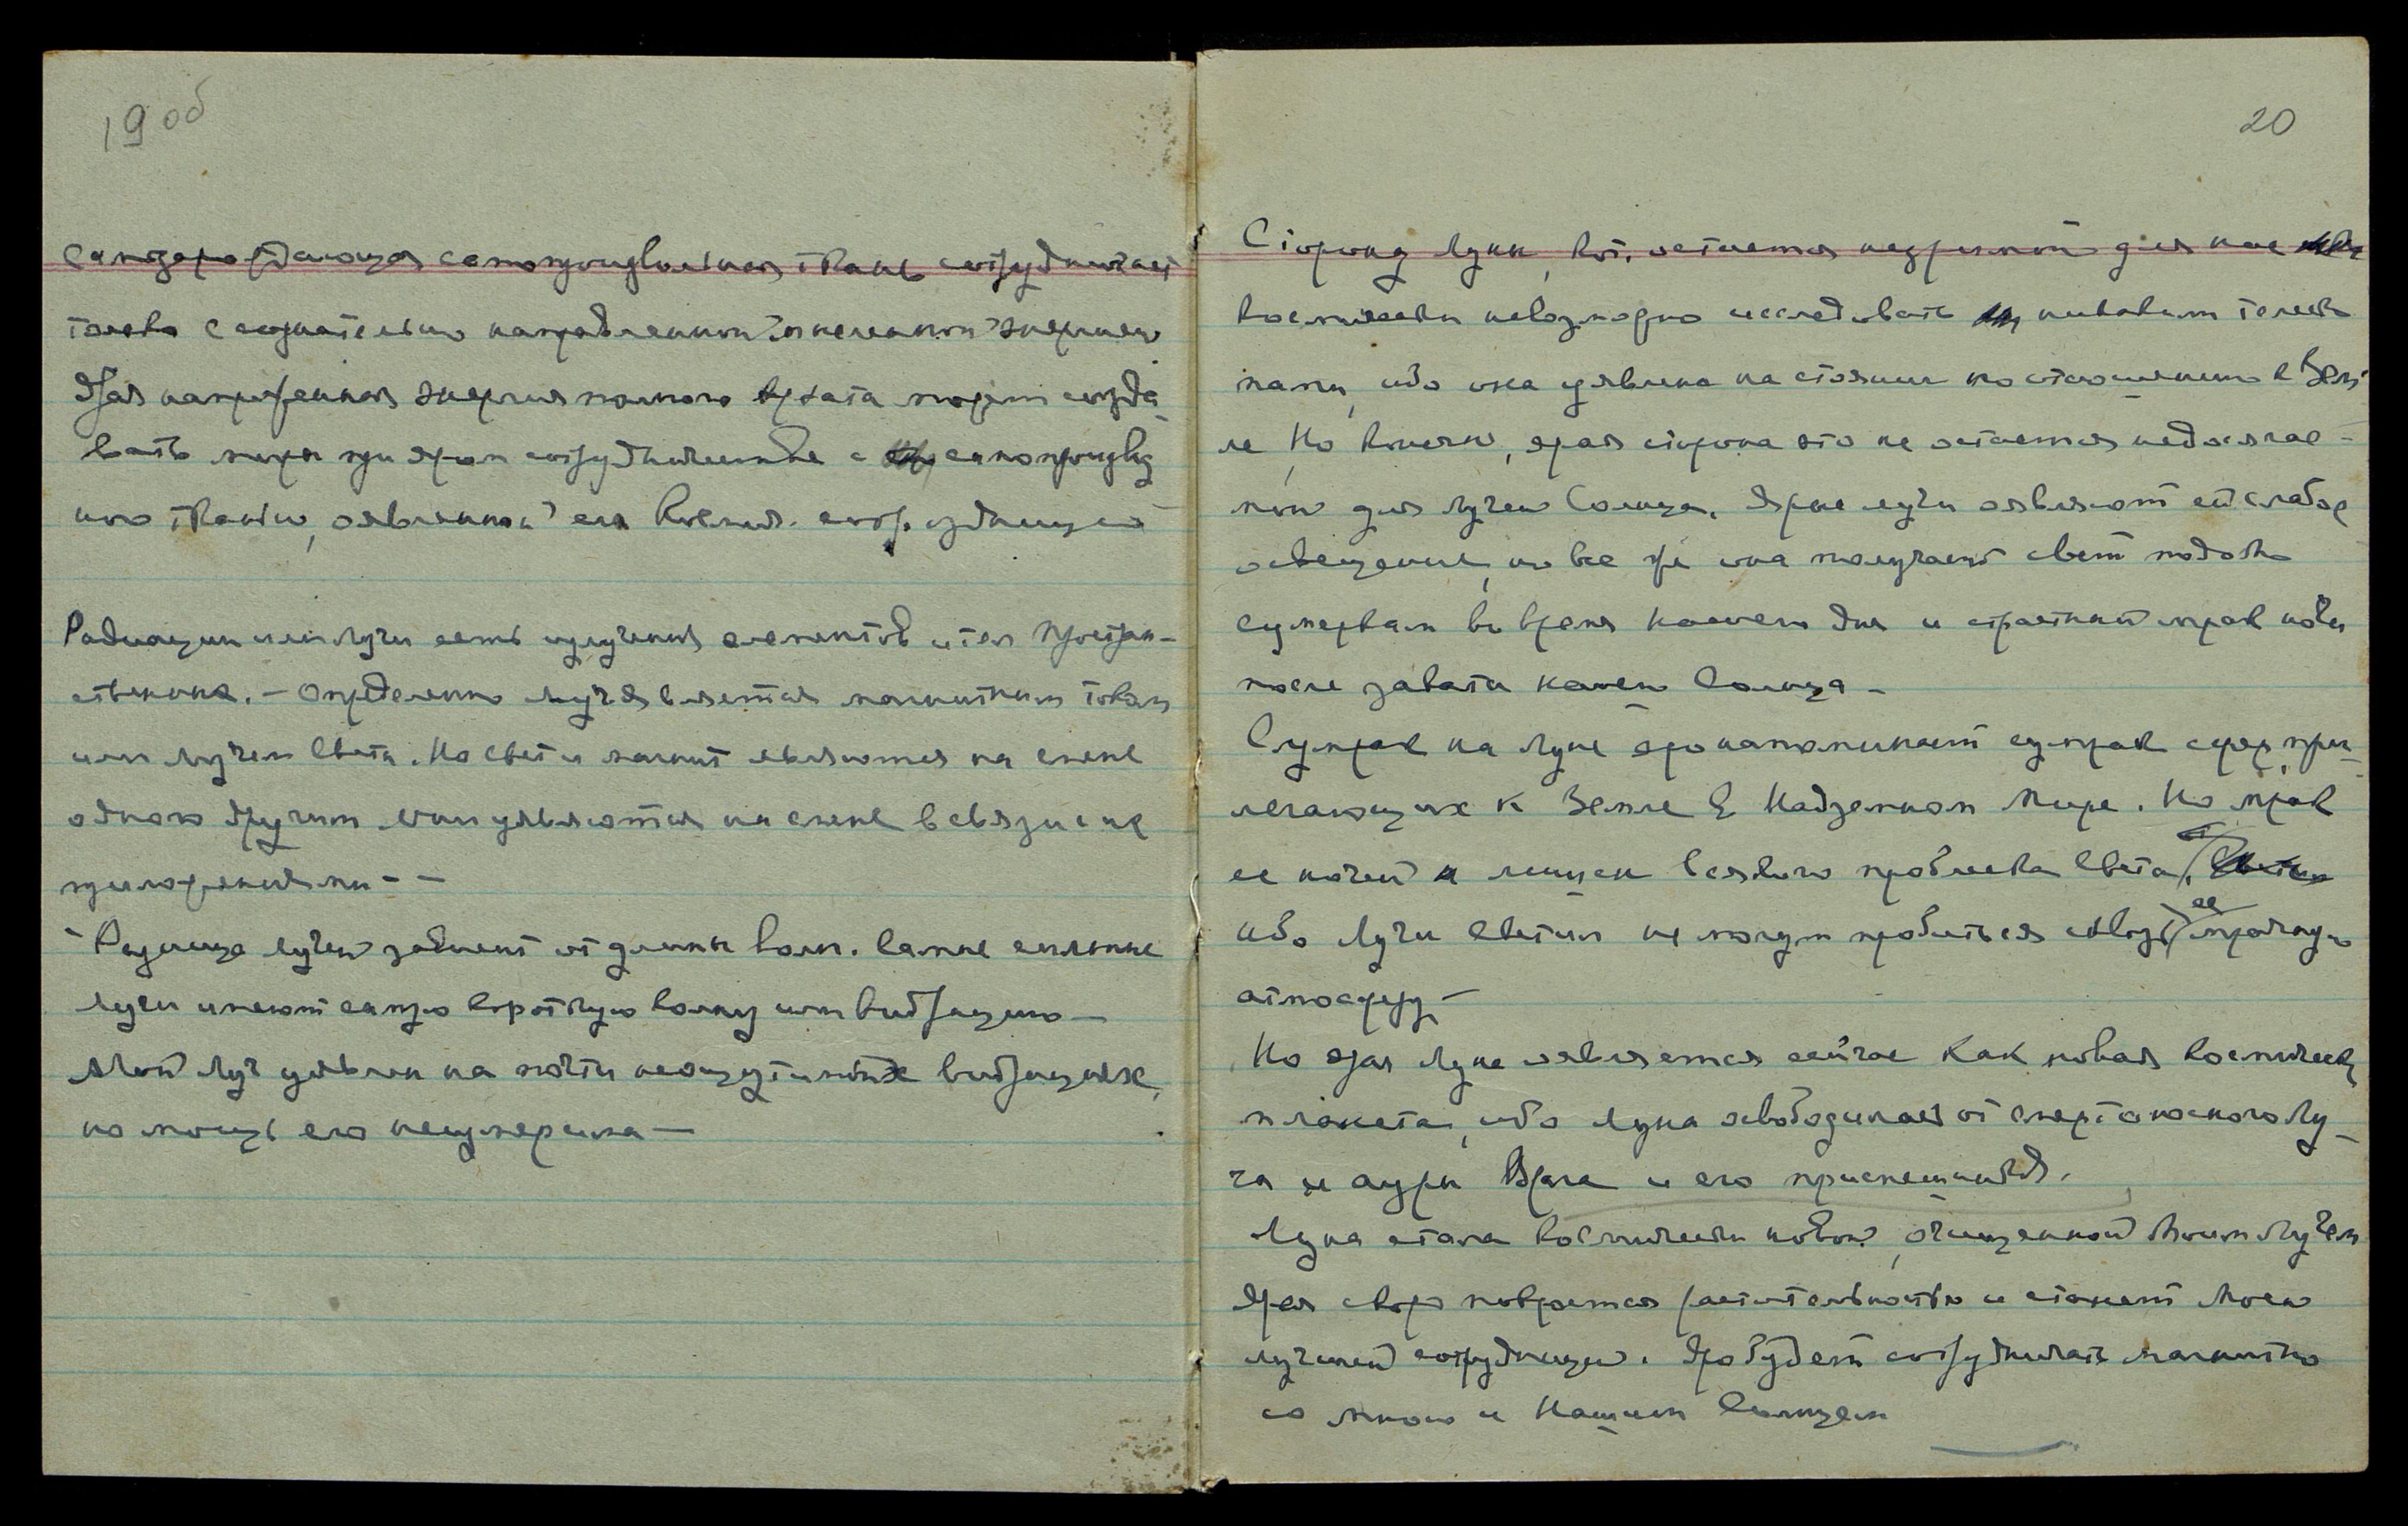 19 об
Самозарождающаяся самопроизвольная ткань сотрудничает
только с сознательно направленной огненной энергией
Ярая напряженная энергия полного Архата может созда-
вать миры при яром сотрудничестве с самопроизв
ной тканью, оявленной ея Космич. сотрудницей
Радиации или лучи есть излучения элементов и тел простран-
ственных. – Определенно луч является магнитным током
или лучем Света. Но свет и магнит являются на смене
одного другим. Они уявляются на смене в связи с их
приложениями – –
Разница лучей зависит от длины волн. Самые сильные
лучи имеют самую короткую волну или вибрацию –
Мой луч уявлен на почти неощутимых вибрациях,
но мощь его неизмерима –
20
Сторону луны, кот. остается незримой для нас
космически невозможно исследовать никакими телеско
пами, ибо она уявлена на стоянии по отношению к Зем-
ле. Но конечно, ярая сторона эта не остается недосягае-
мой для лучей Солнца. Ярые лучи оявляют ей слабое
освещение, но все же она получает свет подобно
сумеркам во время нашего дня и страстный мрак ночи
после заката нашего Солнца –
Сумрак на Луне яро напоминает сумрак сфер, при-
легающих к Земле в Надземном Мире. Но мрак
ее ночей лишен всякого проблеска света,
ибо лучи светил не могут пробиться сквозь ее мрачную
атмосферу –
Но ярая Луна оявляется сейчас как новая космическ
планета, ибо луна освободилась от смертоносного лу-
ча и ауры Врага и его приспешников.
Луна стала космически новой, очищенной Моим Лучем
Ярая скоро покроется растительностью и станет Моей
лучшей сотрудницей. Яро будет сотрудничать магнитно
со мною и Нашим Солнцем